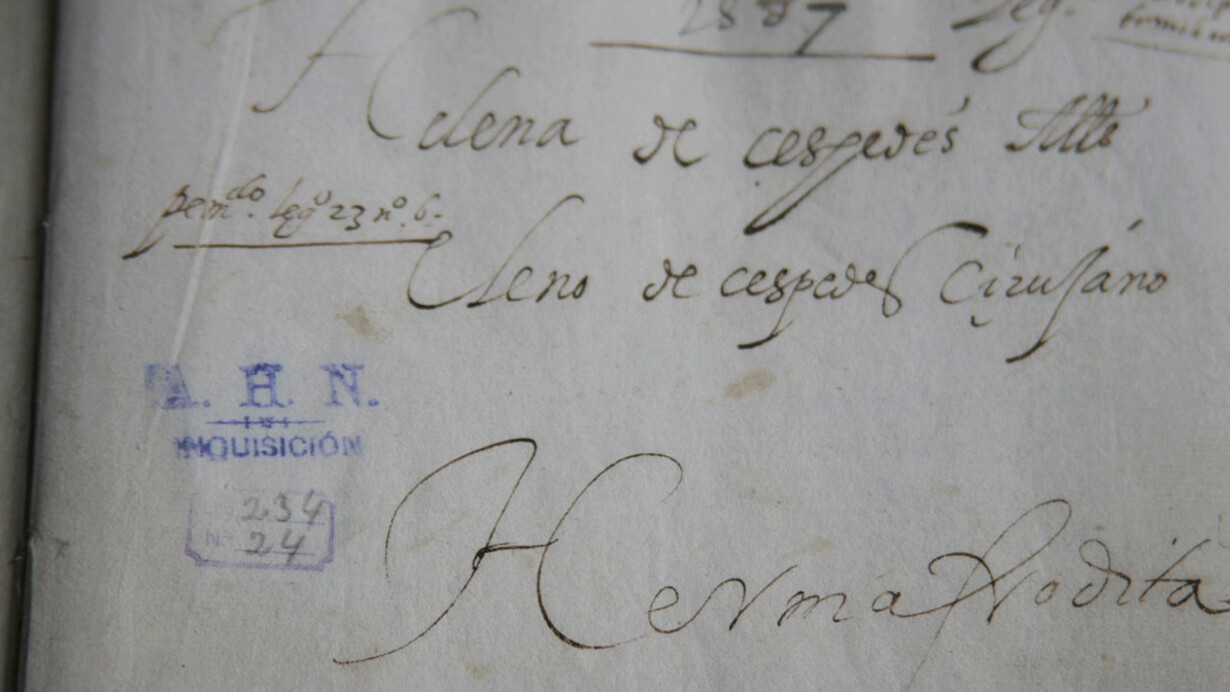 Helena de cespedes
pem.do leg.o 23 n.o 6.
Eleno de cespedes Cirujano
A. H. N.
INQUISICIÓN
234
Nº 24
Hermafrodita